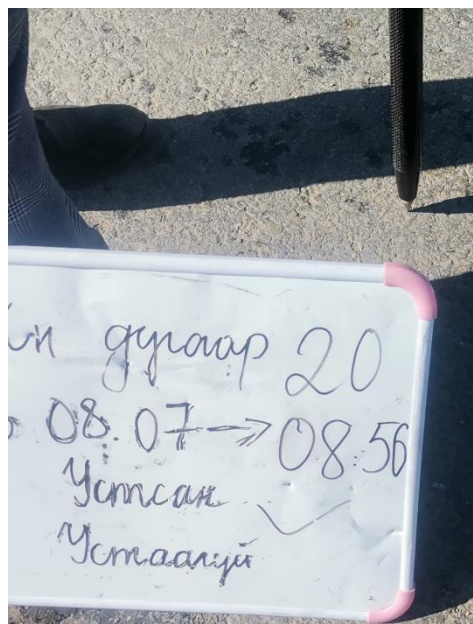 дугаар 20
08.07 → 08:56
Устсан ✓
Устаагүй